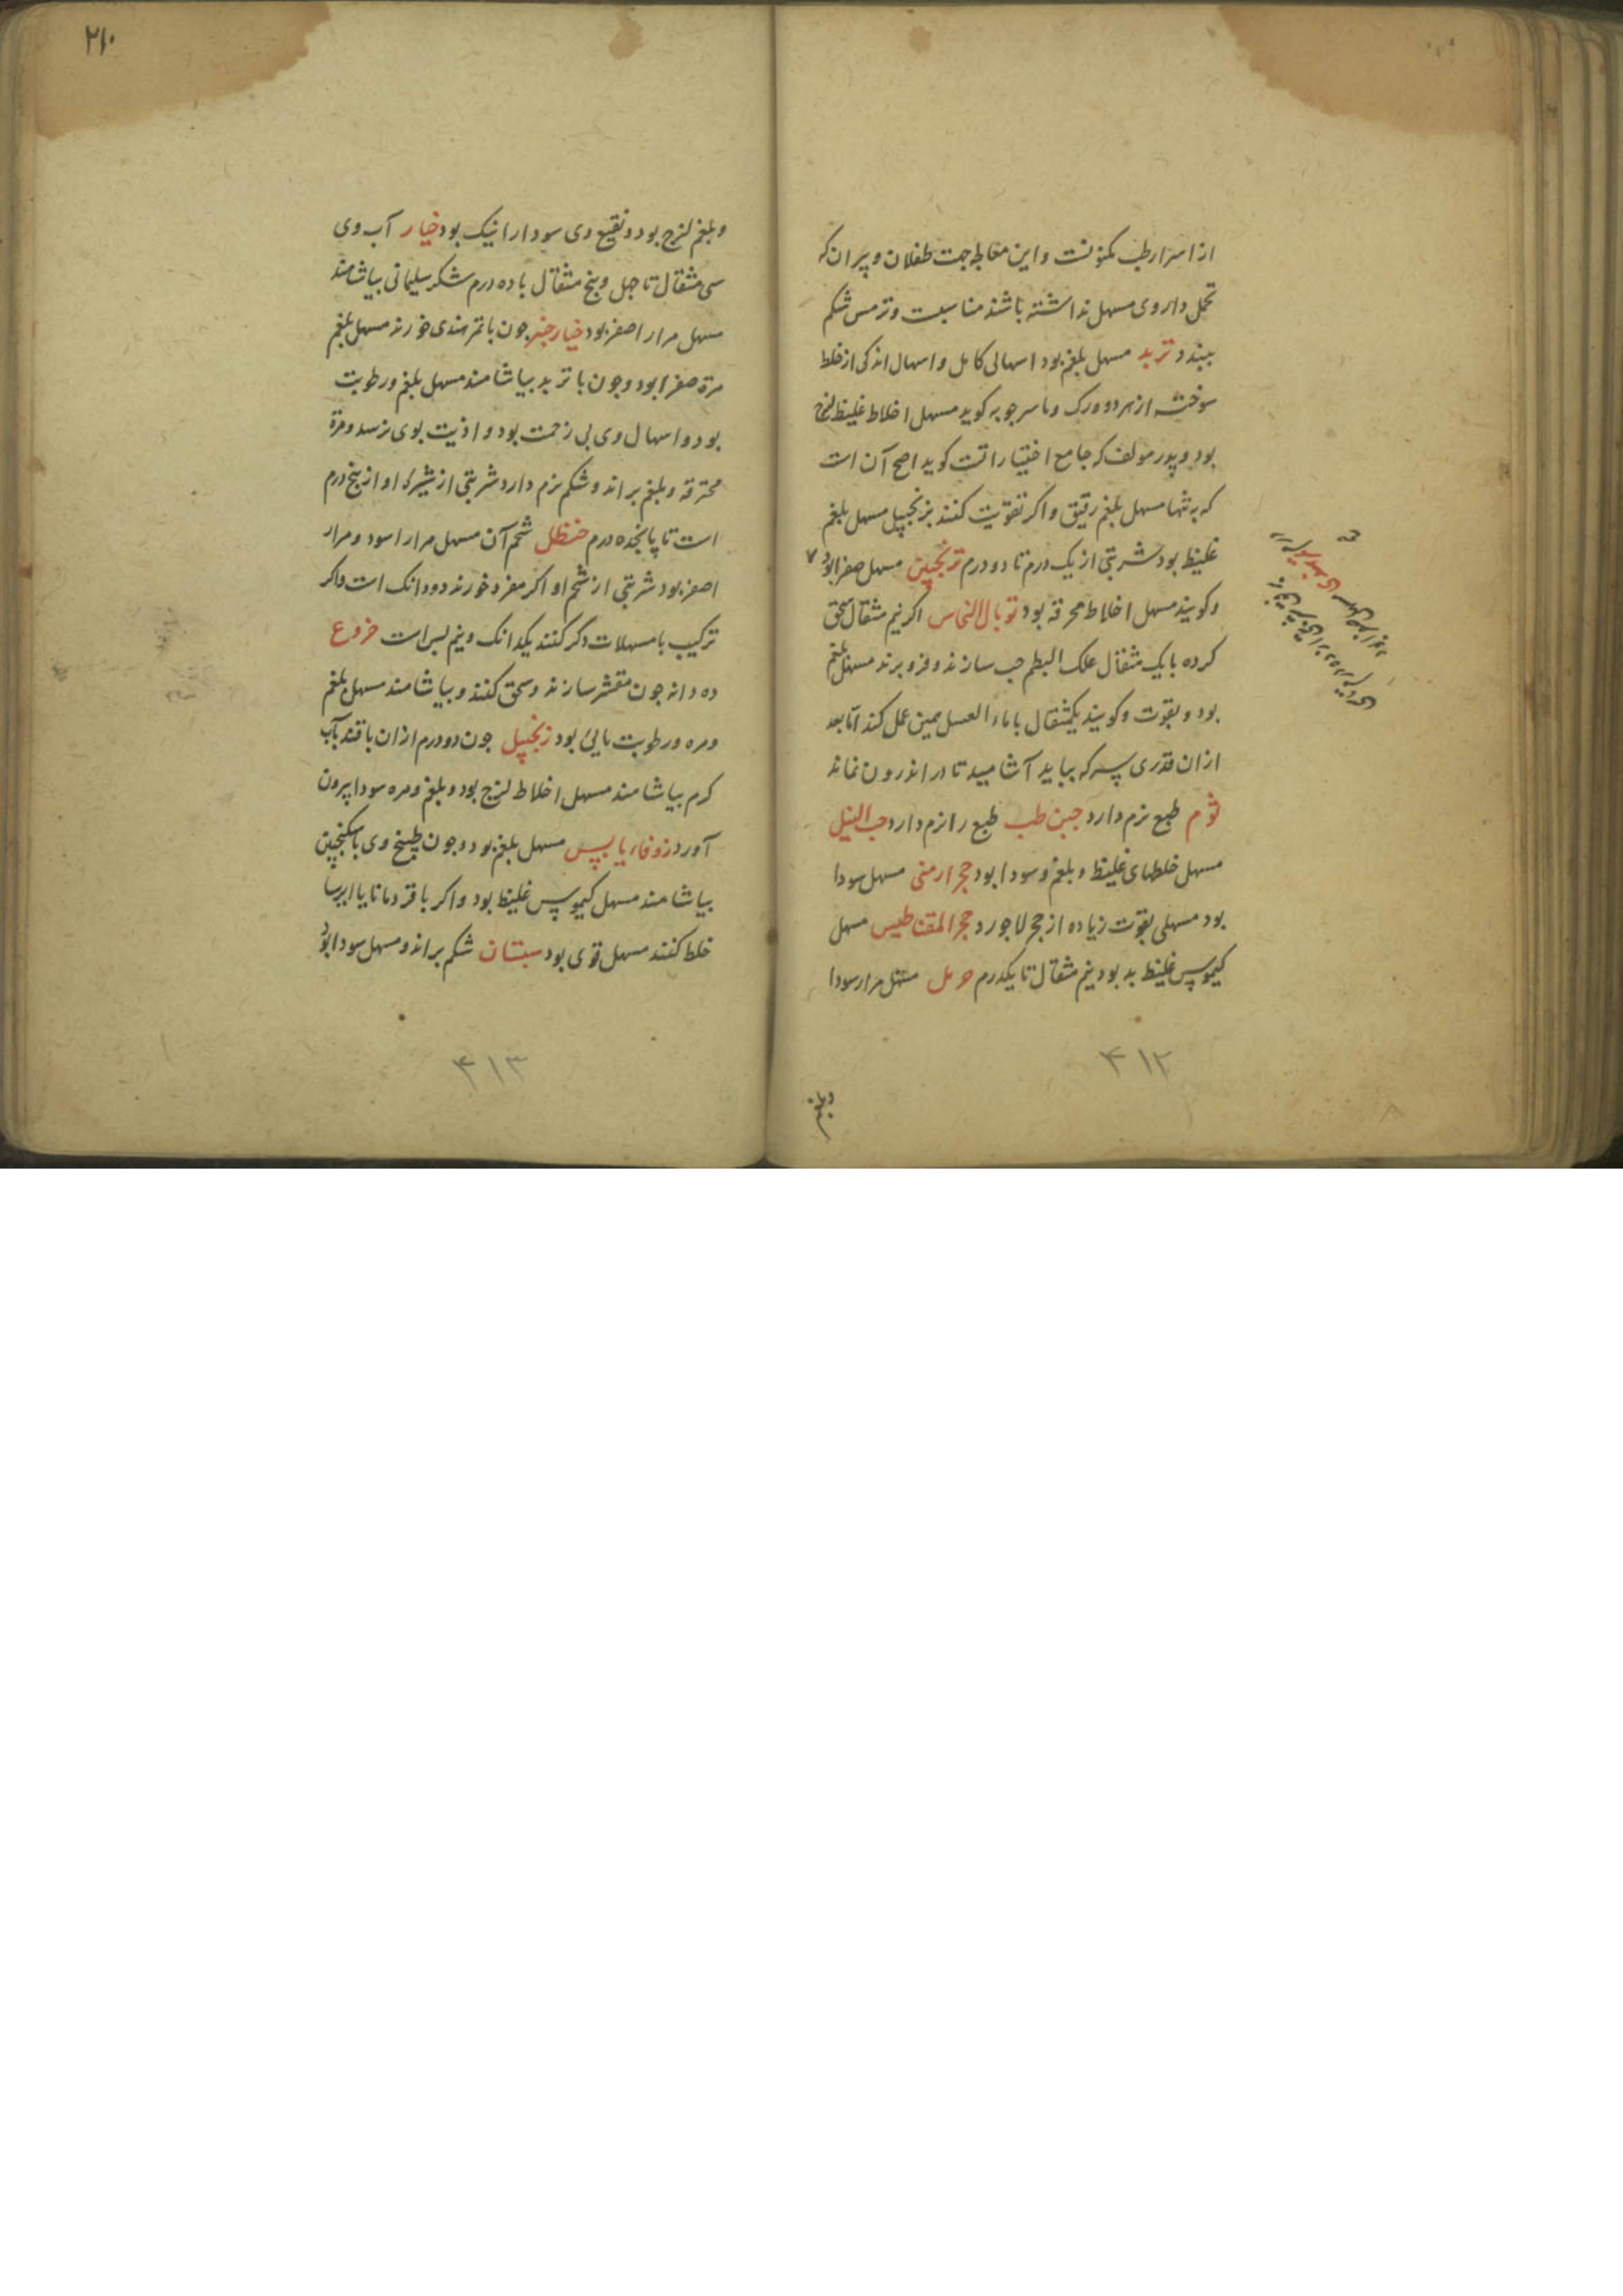 از اسرار طب مکنونست و این معالجه جهت طفلان و پیران که
تحمل داروی مسهل نداشته باشند مناسبت و ترمس شکم
ببندد تربد مسهل بلغم بود اسهالی کامل و اسهال اندکی از خلط
سوخته از هر دو ورک و ماسرجویه کوید مسهل اخلاط غلیظ لزج
بود و پدر مولف که جامع اختیاراتست کوید اصح آن است
که به تنها مسهل بلغم رقیق و اکر تقویت کنند بزنجبیل مسهل بلغم
غلیظ بود شربتی از یک درم تا دو درم ترنجبین مسهل صفرا بود ۷
و کویند مسهل اخلاط محرقه بود توبال النحاس اکر نیم مثقال سحق
کرده با یک مثقال علک البطم حب سازند و فرو برند مسهل بلغم
بود و بقوت و کویند یکمثقال با ماء العسل همین عمل کند اما بعد
از ان قدری سرکه بباید آشامید تا در اندرون نماند
ثوم طبع نرم دارد جبن طب طبع را نرم دارد حب النیل
مسهل خلطهای غلیظ و بلغم و سودا بود حجر ارمنی مسهل سودا
بود مسهلی بقوت زیاده از حجر لاجورد حجر المقناطیس مسهل
کیموس غلیظ بد بود نیم مثقال تا یکدرم حرمل مسهل مرار سودا
۴۱۲
وبلغم
۲۱۰
و بلغم لزج بود و نقیع وی سودا را نیک بود خیار آب وی
سی مثقال تا چهل و پنج مثقال با ده درم شکر سلیمانی بیاشامند
مسهل مرار اصفر بود خیار چنبر جون با تمر هندی خورند مسهل بلغم
مرة صفرا بود و جون با تربد بیاشامند مسهل بلغم و رطوبت
بود و اسهال وی بی زحمت بود و اذیت بوی نرسد و مرة
محترقه و بلغم براند و شکم نرم دارد شربتی از شیرک او از پنج درم
است تا پانجده درم حنظل شحم آن مسهل مرار اسود و مرار
اصفر بود شربتی از شحم او اکر مفرد خورند دو دانک است و اکر
ترکیب با مسهلات دکر کنند یکدانک و نیم بس است خروع
ده دانه جون مقشر سازند و سحق کنند و بیاشامند مسهل بلغم
و مره و رطوبت مایی بود زنجبیل جون دو درم از ان با قند بآب
کرم بیاشامند مسهل اخلاط لزج بود و بلغم و مره سودا بیرون
آورد زوفاء یابس مسهل بلغم بود و جون طبیخ وی با سکنجبین
بیاشامند مسهل کیموس غلیظ بود و اکر با قردمانا یا ایرسا
خلط کنند مسهل قوی بود سبستان شکم براند و مسهل سودا بود
۴۱۳